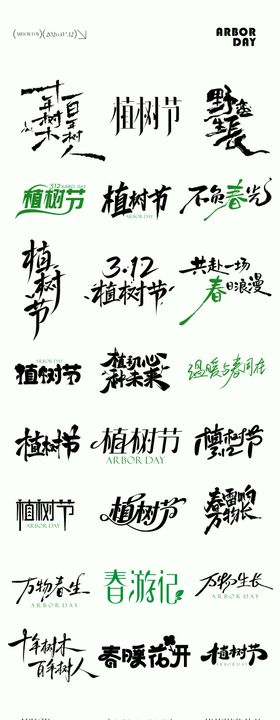 (ARBOR DAY)
ARBOR
DAY
十年树木
百年树人
植树节
野蛮
生長
植树节
312 ARBOR DAY
植树节
ARBOR DAY
不负春光
植树节
3.12
植树节
共赴一场
春日浪漫
ARBOR DAY
植树节
植初心
种未来
温暖与春同在
植树节
植树节
ARBOR DAY
植树节
3.12
植树节
ARBOR DAY
植树节
春雷响
万物长
万物春生
ARBOR DAY
春游记
万物生长
ARBOR DAY
十年树木
百年树人
春暖花开
植树节
ARBOR DAY